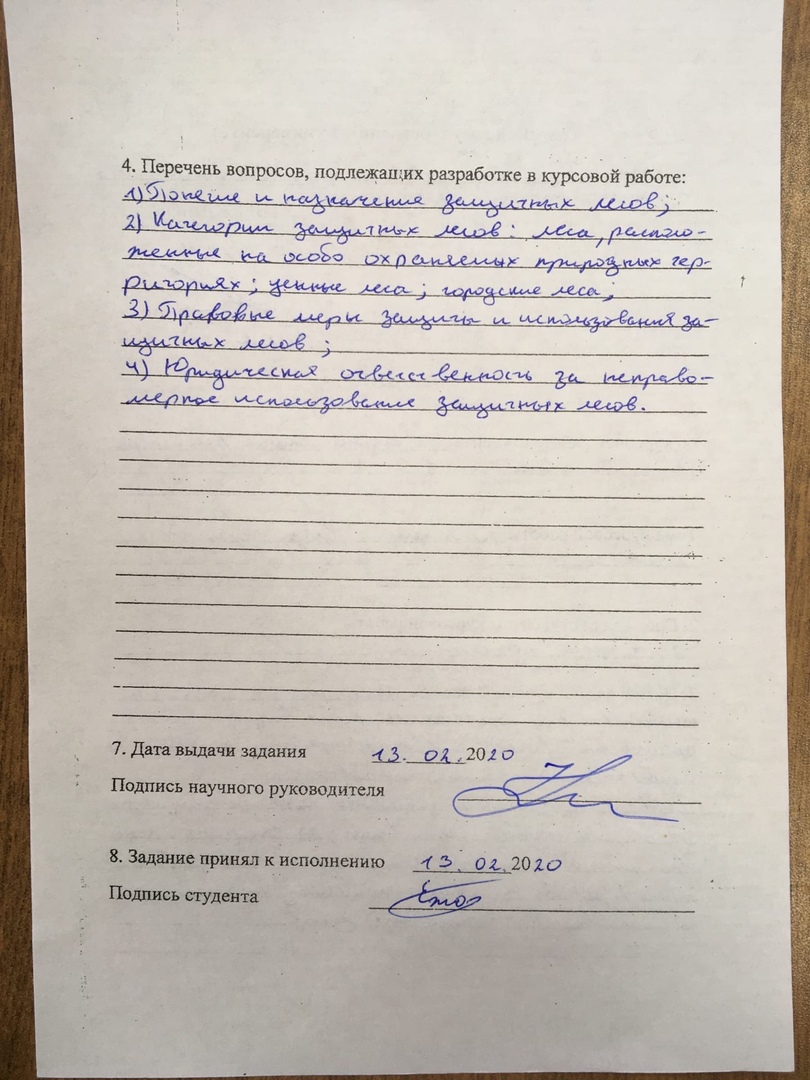 4. Перечень вопросов, подлежащих разработке в курсовой работе:
1) Понятие и назначение защитных лесов;
2) Категории защитных лесов: леса, располо-
женные на особо охраняемых природных тер-
риториях; ценные леса; городские леса;
3) Правовые меры защиты и использования за-
щитных лесов;
4) Юридическая ответственность за неправо-
мерное использование защитных лесов.
7. Дата выдачи задания 13. 02. 2020
Подпись научного руководителя
8. Задание принял к исполнению 13. 02. 2020
Подпись студента